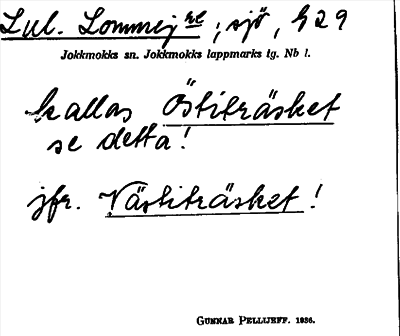 Lul. Lommej re ; sjö, G29
Jokkmokks sn. Jokkmokks lappmarks tg. Nb l.
kallas Östiträsket
se detta!
jfr. Västiträsket!
GUNNAR PELLIJEFF. 1936.